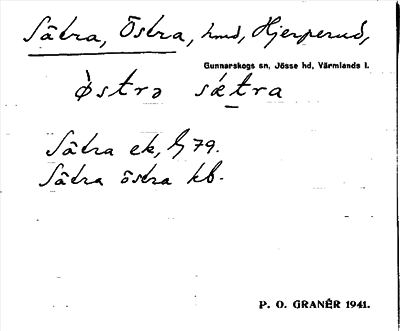 Sätra, Östra, hmd, Hjerperud,
Gunnarskogs sn, Jösse hd, Värmlands l.
ø̀strə sǽtra
Sätra ek, 79.
Sätra östra kb.
P. O. GRANÉR 1941.